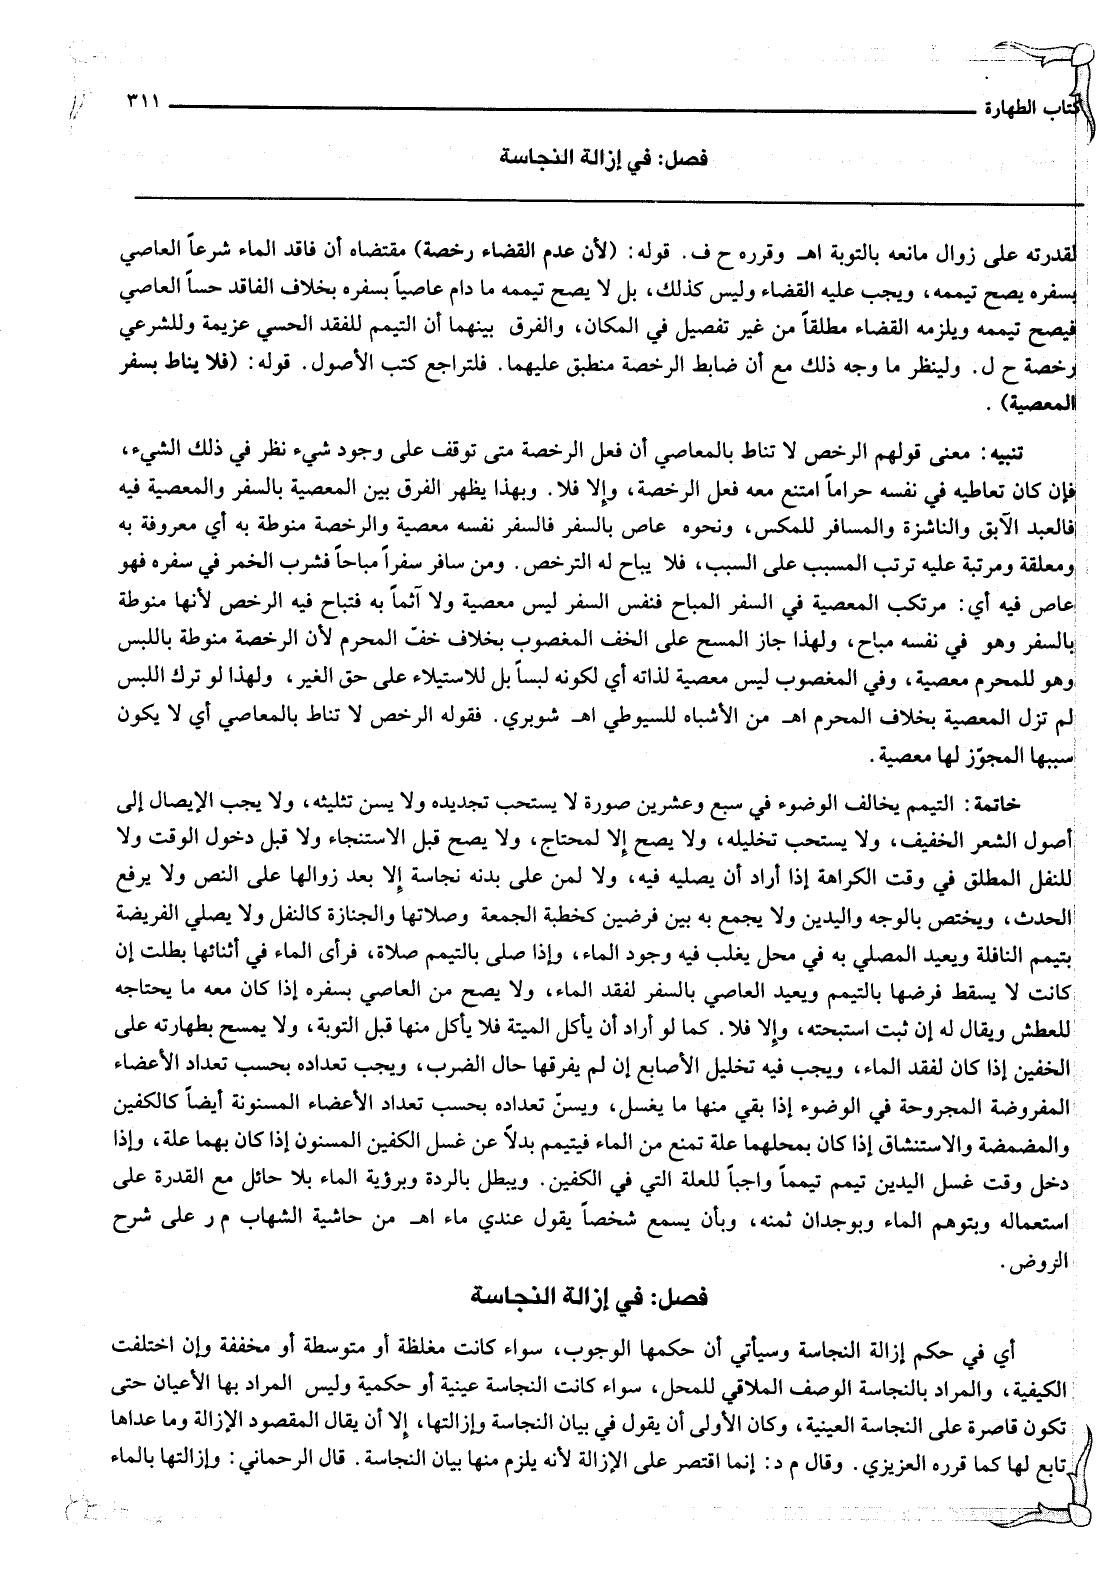 كتاب الطهارة ٣١١
فصل: في إزالة النجاسة
لقدرته على زوال مانعه بالتوبة اهـ وقرره ح ف. قوله: (لأن عدم القضاء رخصة) مقتضاه أن فاقد الماء شرعاً العاصي
بسفره يصح تيممه، ويجب عليه القضاء وليس كذلك، بل لا يصح تيممه ما دام عاصياً بسفره بخلاف الفاقد حساً العاصي
فيصح تيممه ويلزمه القضاء مطلقاً من غير تفصيل في المكان، والفرق بينهما أن التيمم للفقد الحسي عزيمة وللشرعي
رخصة ح ل. ولينظر ما وجه ذلك مع أن ضابط الرخصة منطبق عليهما. فلتراجع كتب الأصول. قوله: (فلا يناط بسفر
المعصية) .
تنبيه: معنى قولهم الرخص لا تناط بالمعاصي أن فعل الرخصة متى توقف على وجود شيء نظر في ذلك الشيء،
فإن كان تعاطيه في نفسه حراماً امتنع معه فعل الرخصة، وإلا فلا. وبهذا يظهر الفرق بين المعصية بالسفر والمعصية فيه
فالعبد الآبق والناشزة والمسافر للمكس، ونحوه عاص بالسفر فالسفر نفسه معصية والرخصة منوطة به أي معروفة به
ومعلقة ومرتبة عليه ترتب المسبب على السبب، فلا يباح له الترخص. ومن سافر سفراً مباحاً فشرب الخمر في سفره فهو
عاص فيه أي: مرتكب المعصية في السفر المباح فنفس السفر ليس معصية ولا آثماً به فتباح فيه الرخص لأنها منوطة
بالسفر وهو في نفسه مباح، ولهذا جاز المسح على الخف المغصوب بخلاف خفّ المحرم لأن الرخصة منوطة باللبس
وهو للمحرم معصية، وفي المغصوب ليس معصية لذاته أي لكونه لبساً بل للاستيلاء على حق الغير، ولهذا لو ترك اللبس
لم تزل المعصية بخلاف المحرم اهـ من الأشباه للسيوطي اهـ شوبري. فقوله الرخص لا تناط بالمعاصي أي لا يكون
سببها المجوّز لها معصية.
خاتمة: التيمم يخالف الوضوء في سبع وعشرين صورة لا يستحب تجديده ولا يسن تثليثه، ولا يجب الإيصال إلى
أصول الشعر الخفيف، ولا يستحب تخليله، ولا يصح إلا لمحتاج، ولا يصح قبل الاستنجاء ولا قبل دخول الوقت ولا
للنفل المطلق في وقت الكراهة إذا أراد أن يصليه فيه، ولا لمن على بدنه نجاسة إلا بعد زوالها على النص ولا يرفع
الحدث، ويختص بالوجه واليدين ولا يجمع به بين فرضين كخطبة الجمعة وصلاتها والجنازة كالنفل ولا يصلي الفريضة
بتيمم النافلة ويعيد المصلي به في محل يغلب فيه وجود الماء، وإذا صلى بالتيمم صلاة، فرأى الماء في أثنائها بطلت إن
كانت لا يسقط فرضها بالتيمم ويعيد العاصي بالسفر لفقد الماء، ولا يصح من العاصي بسفره إذا كان معه ما يحتاجه
للعطش ويقال له إن ثبت استبحته، وإلا فلا. كما لو أراد أن يأكل الميتة فلا يأكل منها قبل التوبة، ولا يمسح بطهارته على
الخفين إذا كان لفقد الماء، ويجب فيه تخليل الأصابع إن لم يفرقها حال الضرب، ويجب تعداده بحسب تعداد الأعضاء
المفروضة المجروحة في الوضوء إذا بقي منها ما يغسل، ويسنّ تعداده بحسب تعداد الأعضاء المسنونة أيضاً كالكفين
والمضمضة والاستنشاق إذا كان بمحلهما علة تمنع من الماء فيتيمم بدلاً عن غسل الكفين المسنون إذا كان بهما علة، وإذا
دخل وقت غسل اليدين تيمم تيمماً واجباً للعلة التي في الكفين. ويبطل بالردة وبرؤية الماء بلا حائل مع القدرة على
استعماله وبتوهم الماء وبوجدان ثمنه، وبأن يسمع شخصاً يقول عندي ماء اهـ من حاشية الشهاب م ر على شرح
الروض.
فصل: في إزالة النجاسة
أي في حكم إزالة النجاسة وسيأتي أن حكمها الوجوب، سواء كانت مغلظة أو متوسطة أو مخففة وإن اختلفت
الكيفية، والمراد بالنجاسة الوصف الملاقي للمحل، سواء كانت النجاسة عينية أو حكمية وليس المراد بها الأعيان حتى
تكون قاصرة على النجاسة العينية، وكان الأولى أن يقول في بيان النجاسة وإزالتها، إلا أن يقال المقصود الإزالة وما عداها
تابع لها كما قرره العزيزي. وقال م د: إنما اقتصر على الإزالة لأنه يلزم منها بيان النجاسة. قال الرحماني: وإزالتها بالماء